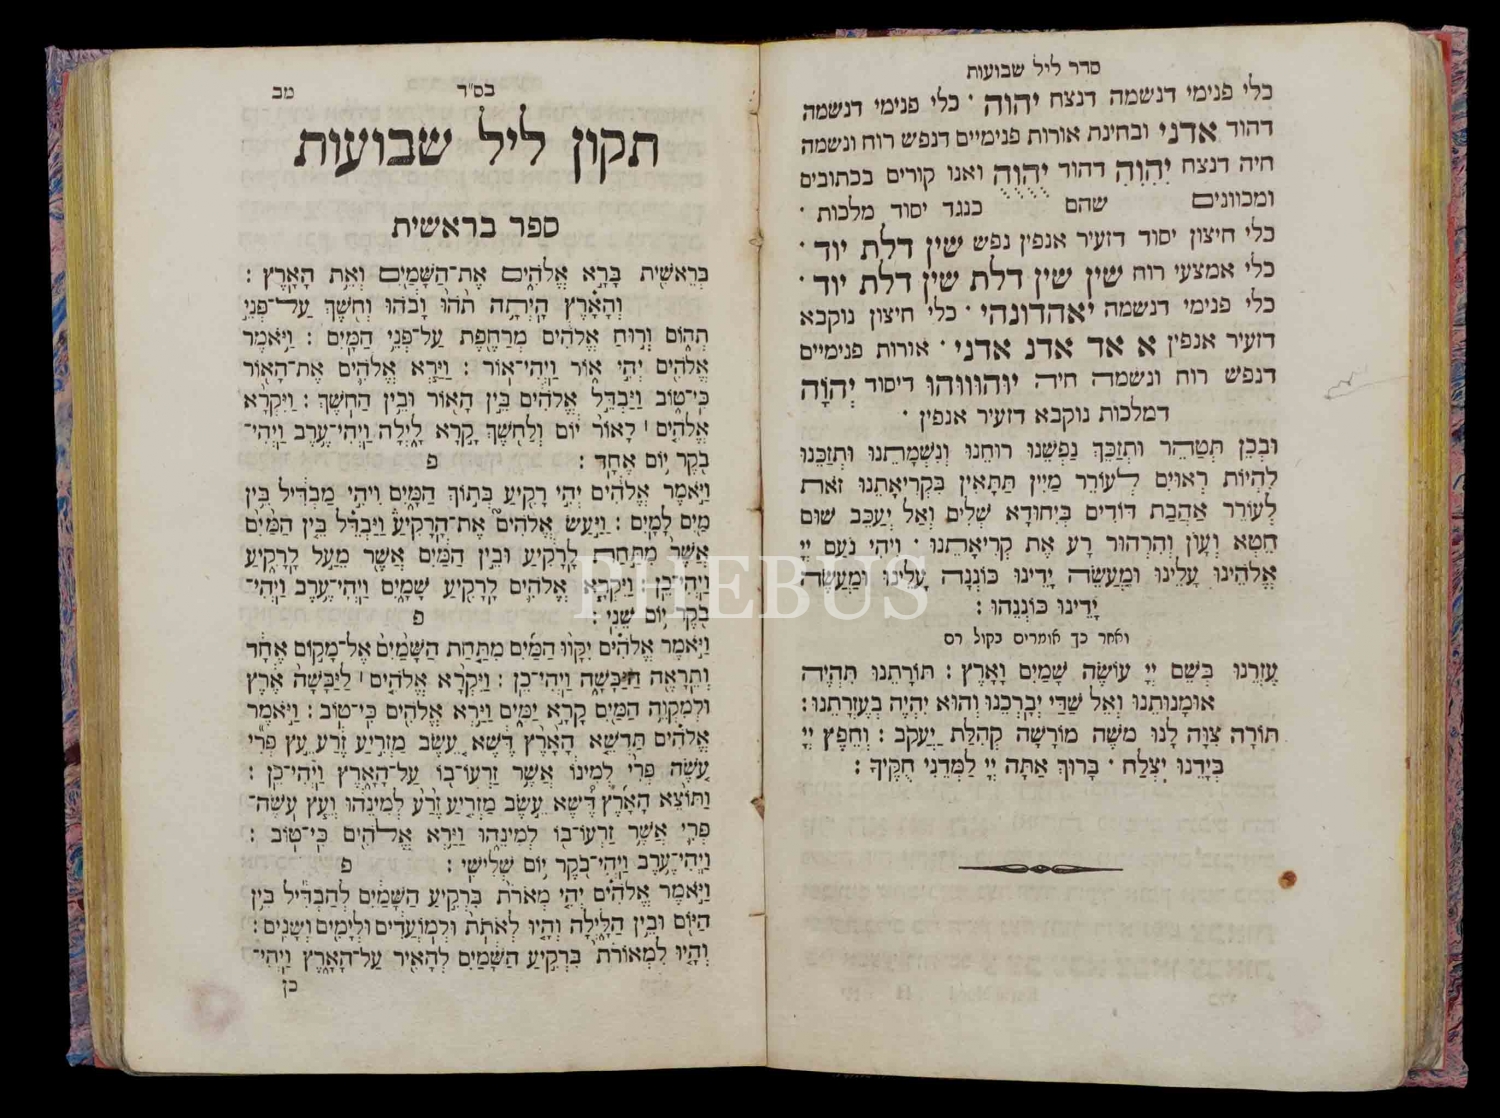 סדר ליל שבועות
כלי פנימי דנשמה דנצח יהוה · כלי פנימי דנשמה
דהוד אדני ובחינת אורות פנימיים דנפש רוח ונשמה
חיה דנצח יִהִוִהִ דהוד יֻהֻוֻהֻ ואנו קורים בכתובים
ומכוונים שהם כנגד יסוד מלכות ·
כלי חיצון יסוד דזעיר אנפין נפש שין דלת יוד ·
כלי אמצעי רוח שין שין דלת שין דלת יוד ·
כלי פנימי דנשמה יאהדונהי · כלי חיצון נוקבא
דזעיר אנפין א אד אדנ אדני · אורות פנימיים
דנפש רוח ונשמה חיה יוהווווהו דיסוד יְהֹוָה
דמלכות נוקבא דזעיר אנפין ·
וּבְכֵן תְּטַהֵר וּתְזַכֵּךְ נַפְשֵׁנוּ רוּחֵנוּ וְנִשְׁמָתֵנוּ וּתְזַכֵּנוּ
לִהְיוֹת רְאוּיִם לְעוֹרֵר מַיִין תַּתָּאִין בִּקְרִיאָתֵנוּ זֹאת
לְעוֹרֵר אַהֲבַת דּוֹדִים בְּיִחוּדָא שְׁלִים וְאַל יְעַכֵּב שׁוּם
חֵטְא וְעָוֹן וְהִרְהוּר רָע אֶת קְרִיאָתֵנוּ · וִיהִי נֹעַם יְיָ
אֱלֹהֵינוּ עָלֵינוּ וּמַעֲשֵׂה יָדֵינוּ כּוֹנְנָה עָלֵינוּ וּמַעֲשֵׂה
יָדֵינוּ כּוֹנְנֵהוּ :
ואחר כך אומרים בקול רם
עֶזְרֵנוּ בְּשֵׁם יְיָ עוֹשֶׂה שָׁמַיִם וָאָרֶץ : תּוֹרָתֵנוּ תִּהְיֶה
אוּמָנוּתֵנוּ וְאֵל שַׁדַּי יְבָרְכֵנוּ וְהוּא יִהְיֶה בְעֶזְרָתֵנוּ :
תּוֹרָה צִוָּה לָנוּ מֹשֶׁה מוֹרָשָׁה קְהִלַּת יַעֲקֹב : וְחֵפֶץ יְיָ
בְּיָדֵנוּ יִצְלַח · בָּרוּךְ אַתָּה יְיָ לַמְּדֵנִי חֻקֶּיךָ :
בס"ד מב
תקון ליל שבועות
ספר בראשית
בְּרֵאשִׁית בָּרָא אֱלֹהִים אֶת־הַשָּׁמַיִם וְאֵת הָאָרֶץ :
וְהָאָרֶץ הָיְתָה תֹהוּ וָבֹהוּ וְחֹשֶׁךְ עַל־פְּנֵי
תְהוֹם וְרוּחַ אֱלֹהִים מְרַחֶפֶת עַל־פְּנֵי הַמָּיִם : וַיֹּאמֶר
אֱלֹהִים יְהִי אוֹר וַיְהִי־אוֹר : וַיַּרְא אֱלֹהִים אֶת־הָאוֹר
כִּי־טוֹב וַיַּבְדֵּל אֱלֹהִים בֵּין הָאוֹר וּבֵין הַחֹשֶׁךְ : וַיִּקְרָא
אֱלֹהִים ׀ לָאוֹר יוֹם וְלַחֹשֶׁךְ קָרָא לָיְלָה וַיְהִי־עֶרֶב וַיְהִי־
בֹקֶר יוֹם אֶחָד : פ
וַיֹּאמֶר אֱלֹהִים יְהִי רָקִיעַ בְּתוֹךְ הַמָּיִם וִיהִי מַבְדִּיל בֵּין
מַיִם לָמָיִם : וַיַּעַשׂ אֱלֹהִים אֶת־הָרָקִיעַ וַיַּבְדֵּל בֵּין הַמַּיִם
אֲשֶׁר מִתַּחַת לָרָקִיעַ וּבֵין הַמַּיִם אֲשֶׁר מֵעַל לָרָקִיעַ
וַיְהִי־כֵן : וַיִּקְרָא אֱלֹהִים לָרָקִיעַ שָׁמָיִם וַיְהִי־עֶרֶב וַיְהִי־
בֹקֶר יוֹם שֵׁנִי : פ
וַיֹּאמֶר אֱלֹהִים יִקָּווּ הַמַּיִם מִתַּחַת הַשָּׁמַיִם אֶל־מָקוֹם אֶחָד
וְתֵרָאֶה הַיַּבָּשָׁה וַיְהִי־כֵן : וַיִּקְרָא אֱלֹהִים ׀ לַיַּבָּשָׁה אֶרֶץ
וּלְמִקְוֵה הַמַּיִם קָרָא יַמִּים וַיַּרְא אֱלֹהִים כִּי־טוֹב : וַיֹּאמֶר
אֱלֹהִים תַּדְשֵׁא הָאָרֶץ דֶּשֶׁא עֵשֶׂב מַזְרִיעַ זֶרַע עֵץ פְּרִי
עֹשֶׂה פְּרִי לְמִינוֹ אֲשֶׁר זַרְעוֹ־בוֹ עַל־הָאָרֶץ וַיְהִי־כֵן :
וַתּוֹצֵא הָאָרֶץ דֶּשֶׁא עֵשֶׂב מַזְרִיעַ זֶרַע לְמִינֵהוּ וְעֵץ עֹשֶׂה־
פְּרִי אֲשֶׁר זַרְעוֹ־בוֹ לְמִינֵהוּ וַיַּרְא אֱלֹהִים כִּי־טוֹב :
וַיְהִי־עֶרֶב וַיְהִי־בֹקֶר יוֹם שְׁלִישִׁי : פ
וַיֹּאמֶר אֱלֹהִים יְהִי מְאֹרֹת בִּרְקִיעַ הַשָּׁמַיִם לְהַבְדִּיל בֵּין
הַיּוֹם וּבֵין הַלָּיְלָה וְהָיוּ לְאֹתֹת וּלְמוֹעֲדִים וּלְיָמִים וְשָׁנִים :
וְהָיוּ לִמְאוֹרֹת בִּרְקִיעַ הַשָּׁמַיִם לְהָאִיר עַל־הָאָרֶץ וַיְהִי־
כן
PHEBUS